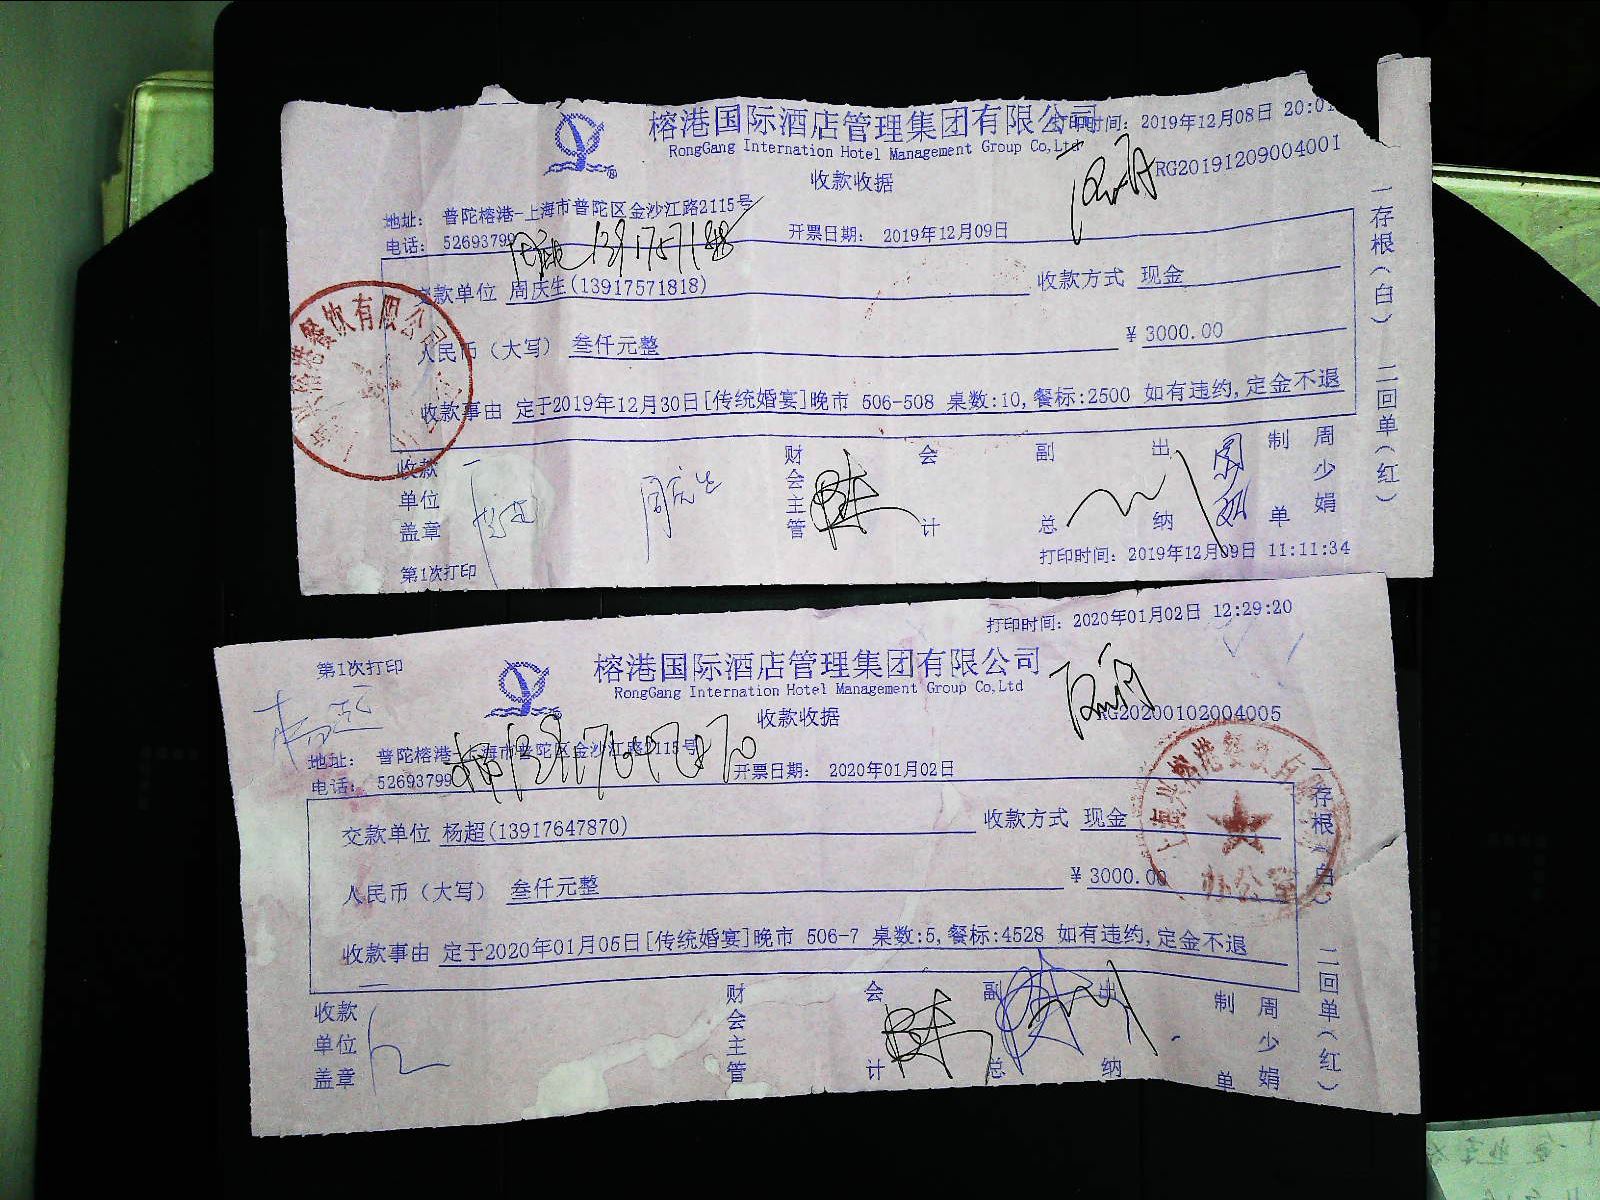 榕港国际酒店管理集团有限公司
打印时间: 2019年12月08日 20:01
RongGang Internation Hotel Management Group Co,Ltd
收款收据
RG20191209004001
地址: 普陀榕港-上海市普陀区金沙江路2115号
电话: 52693799
开票日期: 2019年12月09日
交款单位 周庆生(13917571818)
收款方式 现金
人民币（大写） 叁仟元整
¥ 3000.00
收款事由 定于2019年12月30日[传统婚宴]晚市 506-508 桌数:10,餐标:2500 如有违约,定金不退
一存根(白) 二回单(红)
收款单位盖章
周庆生
财会主管
会计
副总
出纳
制单
周少娟
第1次打印
打印时间: 2019年12月09日 11:11:34
打印时间: 2020年01月02日 12:29:20
第1次打印
榕港国际酒店管理集团有限公司
RongGang Internation Hotel Management Group Co,Ltd
收款收据
RG20200102004005
杨超
地址: 普陀榕港-上海市普陀区金沙江路2115号
电话: 52693799
开票日期: 2020年01月02日
交款单位 杨超(13917647870)
收款方式 现金
人民币（大写） 叁仟元整
¥ 3000.00
收款事由 定于2020年01月05日[传统婚宴]晚市 506-7 桌数:5,餐标:4528 如有违约,定金不退
一存根(白) 二回单(红)
办公室
收款单位盖章
财会主管
会计
副总
出纳
制单
周少娟